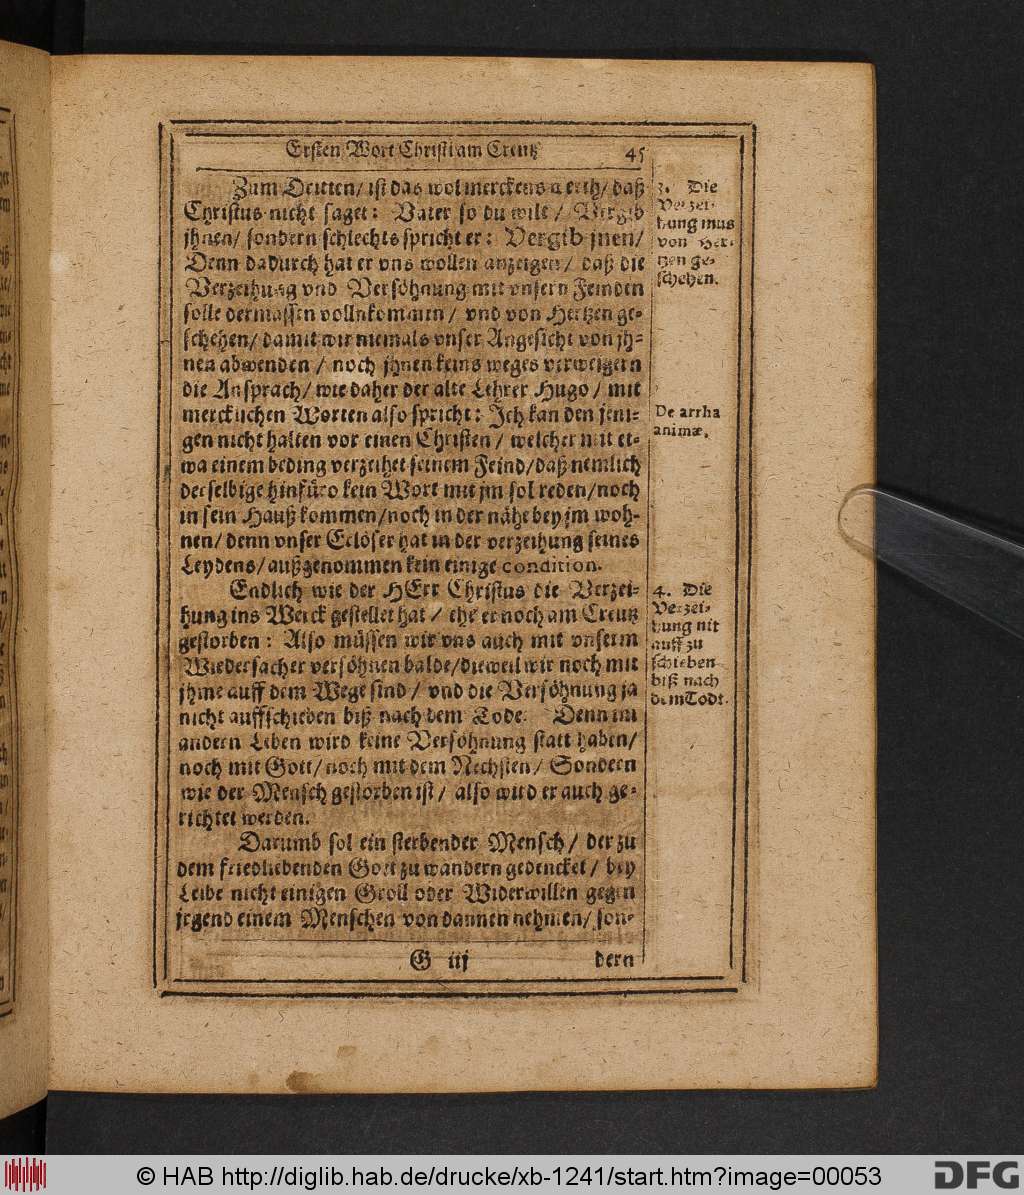 Ersten Wort Christi am Creutz
45
Zum Dritten/ ist das wol merckens werth/ daß
Christus nicht saget: Vater so du wilt / Vergib
jhnen/ sondern schlechts spricht er: Vergib jnen/
Denn dadurch hat er vns wollen anzeigen/ daß die
Verzeihung vnd Versöhnung mit vnsern Feinden
solle dermassen vollnkommen / vnd von Hertzen ge-
schehen/ damit wir niemals vnser Angesicht von jh-
nen abwenden / noch jhnen keins weges verweigern
die Ansprach/ wie daher der alte Lehrer Hugo / mit
mercklichen Worten also spricht: Ich kan den jeni-
gen nicht halten vor einen Christen / welcher mit et-
wa einem beding verzeihet seinem Feind/ daß nemlich
derselbige hinfüro kein Wort mit jm sol reden/ noch
in sein Hauß kommen/ noch in der nähe bey jm woh-
nen/ denn vnser Erlöser hat in der verzeihung seines
Leydens/ außgenommen kein einige condition.
Endlich wie der HErr Christus die Verzei-
hung ins Werck gestellet hat / ehe er noch am Creutz
gestorben: Also müssen wir vns auch mit vnserm
Widersacher versöhnen balde/ dieweil wir noch mit
jhme auff dem Wege sind / vnd die Versöhnung ja
nicht auffschieben biß nach dem Tode. Denn im
andern Leben wird keine Versöhnung statt haben/
noch mit Gott/ noch mit dem Nechsten/ Sondern
wie der Mensch gestorben ist / also wird er auch ge-
richtet werden.
Darumb sol ein sterbender Mensch / der zu
dem friedliebenden Gott zu wandern gedencket / bey
Leibe nicht einigen Groll oder Widerwillen gegen
jrgend einem Menschen von dannen nehmen/ son-
G iij
dern
3. Die
Verzei-
hung mus
von Her-
tzen ge-
schehen.
De arrha
animæ.
4. Die
Verzei-
hung nit
auff zu
schieben
biß nach
dem Todt.
© HAB http://diglib.hab.de/drucke/xb-1241/start.htm?image=00053
DFG